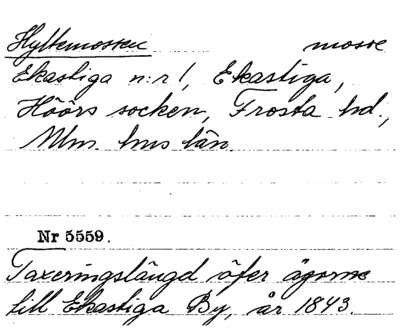 Hyltemossen mosse
Ekastiga n:r 1, Ekastiga,
Höörs socken, Frosta hd.,
Mlm. hus län.
Nr 5559.
Taxeringslängd öfer ägorne
till Ekastiga By, år 1843.